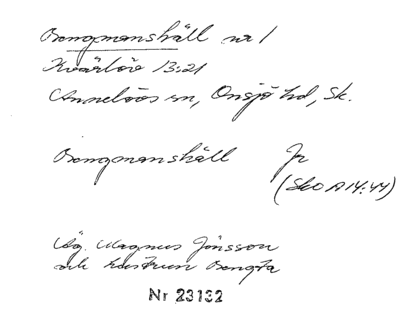 Bengmanshäll nr 1
Kvärlöv 13:21
Annelövs sn, Onsjö hd, Sk.
Bengmanshäll Jr
(SkO A14:44)
Äg. Magnus Jönsson
och hustrun Bengta
Nr 23132